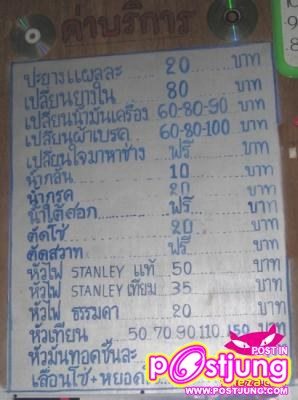 ค่าบริการ
ปะยางแผลละ 20 บาท
เปลี่ยนยางใน 80 บาท
เปลี่ยนน้ำมันเครื่อง 60-80-90 บาท
เปลี่ยนผ้าเบรค 60-80-100 บาท
เปลี่ยนใจมาหาช่าง ฟรี บาท
น้ำกลั่น 10 บาท
น้ำกรด 20 บาท
น้ำใต้ศอก ฟรี บาท
ตัดโซ่ 20 บาท
ตัดสวาท ฟรี บาท
หัวไฟ STANLEY แท้ 50 บาท
หัวไฟ STANLEY เทียม 35 บาท
หัวไฟ ธรรมดา 20 บาท
หัวเทียน 50 70 90 110 150 บาท
หัวมันทอดชิ้นละ
เลื่อนโซ่+หยอด
POST IN
postjung
WWW.POSTJUNG.COM